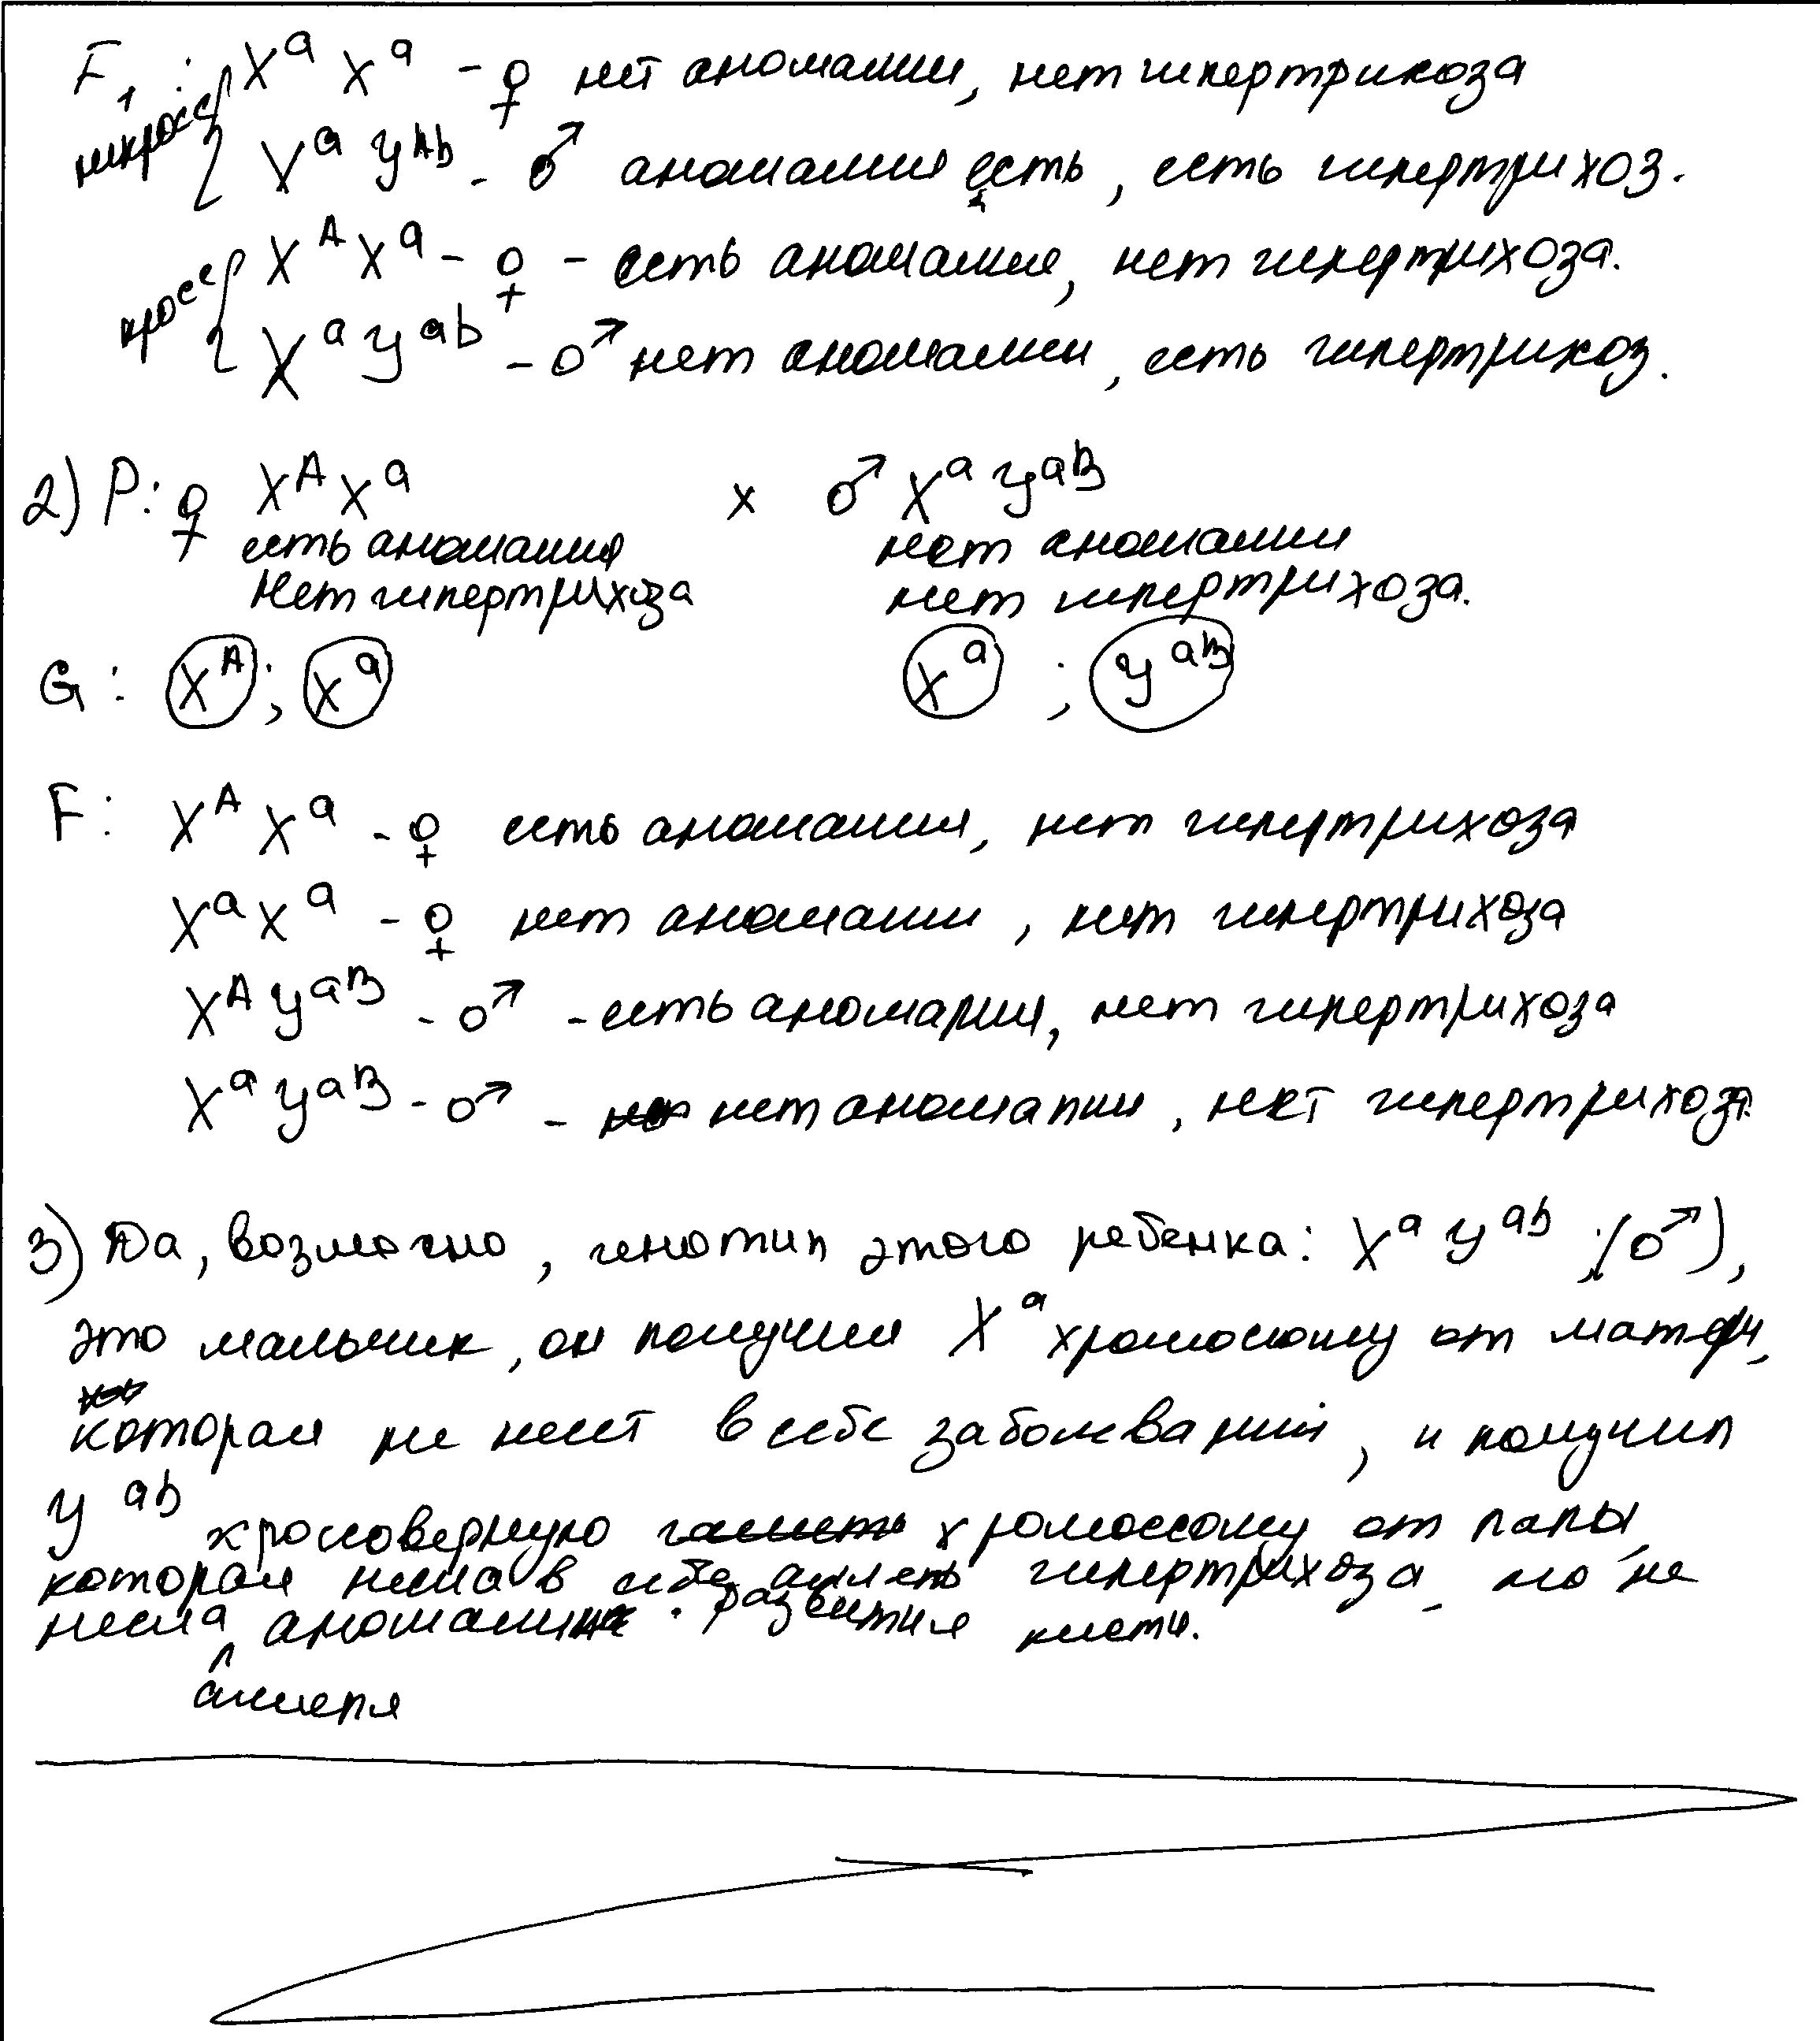 F₁: XᵃXᵃ - ♀ нет аномалии, нет гипертрихоза
некросс { XᵃYᴬᵇ - ♂ аномалия есть, есть гипертрихоз.
кросс { XᴬXᵃ - ♀ - есть аномалия, нет гипертрихоза.
XᵃYᵃᵇ - ♂ нет аномалии, есть гипертрихоз.
2) P: ♀ XᴬXᵃ x ♂ XᵃYᵃᴮ
есть аномалия нет аномалии
нет гипертрихоза нет гипертрихоза.
G: Xᴬ; Xᵃ Xᵃ; Yᵃᴮ
F: XᴬXᵃ - ♀ есть аномалия, нет гипертрихоза
XᵃXᵃ - ♀ нет аномалии, нет гипертрихоза
XᴬYᵃᴮ - ♂ - есть аномалия, нет гипертрихоза
XᵃYᵃᴮ - ♂ - нет аномалии, нет гипертрихоза.
3) Да, возможно, генотип этого ребенка: XᵃYᵃᵇ (♂),
это мальчик, он получил Xᵃ хромосому от матери,
которая не несет в себе заболеваний, и получил
Yᵃᵇ кроссоверную хромоссому от папы,
которая несла в себе аллель гипертрихоза, но не
несла аллеля аномалии развития кисти.